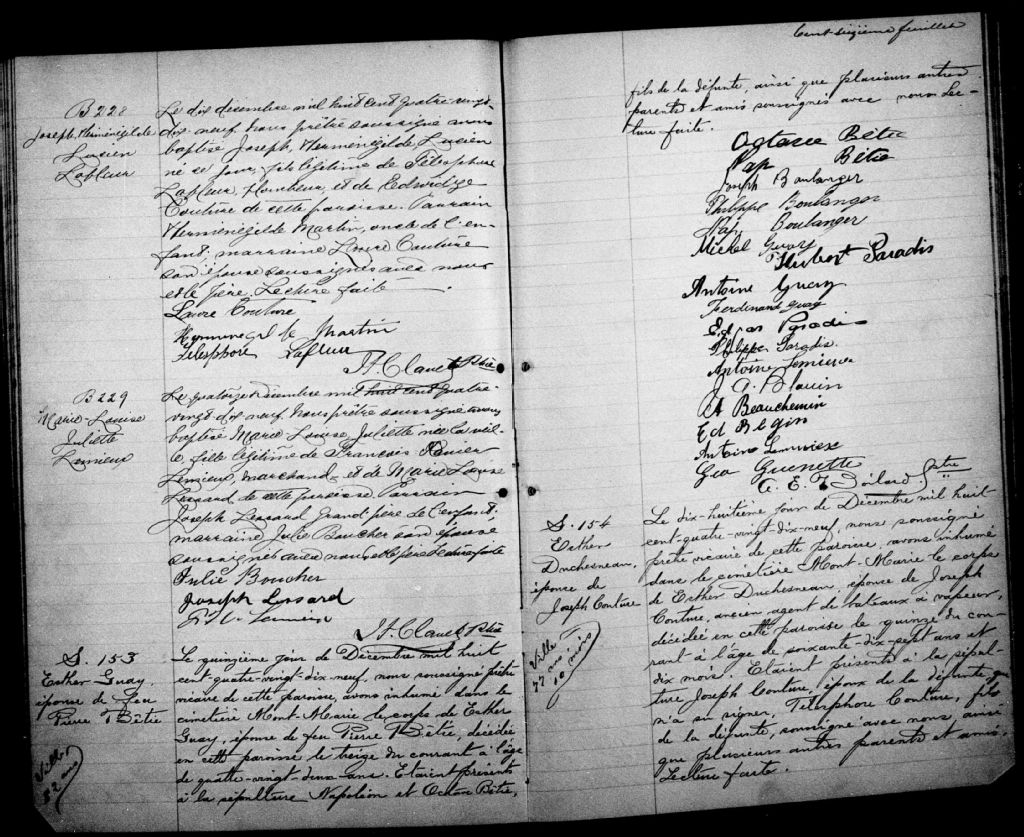 B 228
Joseph, Herménégilde
Lucien
Lafleur
Le dix décembre mil huit cent quatre vingt
dix-neuf, nous prêtre soussigné avons
baptisé Joseph, Herménégilde, Lucien
né ce jour, fils légitime de Télesphore
Lafleur, plombeur, et de Edwidge
Couture de cette paroisse. Parrain
Herménégilde Martin, oncle de l'en-
fant, marraine Laure Couture
son épouse soussignés avec nous
et le père. Lecture faite.
Laure Couture
Hermenegilde Martin
Telesphore Lafleur
B 229
Marie-Louise
Juliette
Lemieux
Le quatorze décembre mil huit cent quatre-
vingt-dix-neuf, nous prêtre soussigné avons
baptisé Marie Louise Juliette née la veil-
le, fille légitime de François
Lemieux, marchand, et de Marie Louise
Lessard de cette paroisse. Parrain
Joseph Lessard Grand-père de l'enfant,
marraine Julie Boucher son épouse
soussignés avec nous et le père. Lecture faite
Julie Boucher
Joseph Lessard
S. 153
Esther Guay
épouse de feu
Pierre Bétie
Ville
82 ans
Le quinzième jour de Décembre mil huit
cent-quatre-vingt-dix-neuf, nous soussigné prêtre
vicaire de cette paroisse, avons inhumé dans le
cimetière Mont-Marie le corps de Esther
Guay, épouse de feu Pierre Bétie, décédée
en cette paroisse le treize du courant à l'âge
de quatre-vingt-deux-ans. Etaient présents
à la sépulture Napoléon et Octave Bétie,
Cent-sixième feuillet
fils de la défunte, ainsi que plusieurs autres
parents et amis soussignés avec nous. Lec-
ture faite.
Octave Bétie
Nap Bétie
Joseph Boulanger
Philippe Boulanger
Nap Boulanger
Michel Guay
Hubert Paradis
Antoine Guay
Ferdinand Guay
Edgar Paradis
Philippe Paradis
Antoine Lemieux
J. A. Blouin
A Beauchemin
Ed Bégin
Antoine Lemieux
Geo Guenette
ptre
S. 154
Esther
Duchesneau,
épouse de
Joseph Couture
Ville
77 ans
10 mois
Le dix-huitième jour de Décembre mil huit
cent-quatre-vingt-dix-neuf, nous soussigné
prêtre vicaire de cette paroisse, avons inhumé
dans le cimetière Mont-Marie le corps
de Esther Duchesneau, épouse de Joseph
Couture, ancien agent de bateaux à vapeur,
décédée en cette paroisse le quinze du cou-
rant à l'âge de soixante-dix-sept ans et
dix mois. Etaient présents à la sépul-
ture Joseph Couture, époux de la défunte, qui
n'a su signer, Télesphore Couture, fils
de la défunte, soussigné avec nous, ainsi
que plusieurs autres parents et amis.
Lecture faite.